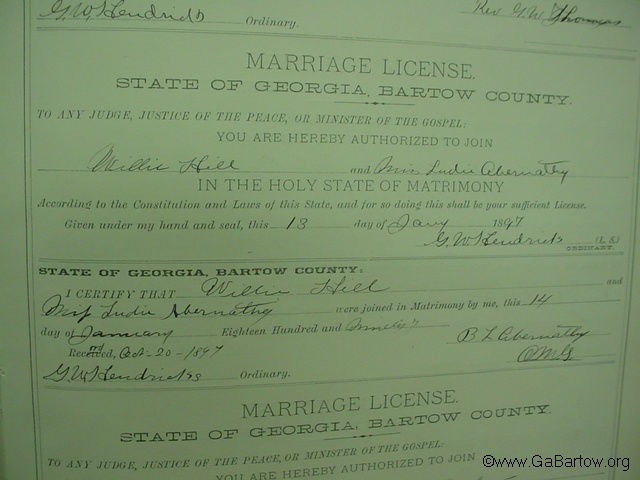 G.W. Hendricks Ordinary. Rev G.W. Thomas
MARRIAGE LICENSE.
STATE OF GEORGIA, BARTOW COUNTY.
TO ANY JUDGE, JUSTICE OF THE PEACE, OR MINISTER OF THE GOSPEL:
YOU ARE HEREBY AUTHORIZED TO JOIN
Willie Hill and Miss Ludie Abernathy
IN THE HOLY STATE OF MATRIMONY
According to the Constitution and Laws of this State, and for so doing this shall be your sufficient License.
Given under my hand and seal, this 13 day of Jany 1897
G.W. Hendricks (L. S.)
ORDINARY.
STATE OF GEORGIA, BARTOW COUNTY:
I CERTIFY THAT Willie Hill and
Miss Ludie Abernathy were joined in Matrimony by me, this 14
day of January Eighteen Hundred and
B L Abernathy
Recorded, Oct-20-1897
G W Hendricks Ordinary.
MARRIAGE LICENSE.
STATE OF GEORGIA, BARTOW COUNTY.
TO ANY JUDGE, JUSTICE OF THE PEACE, OR MINISTER OF THE GOSPEL:
YOU ARE HEREBY AUTHORIZED TO JOIN
©www.GaBartow.org